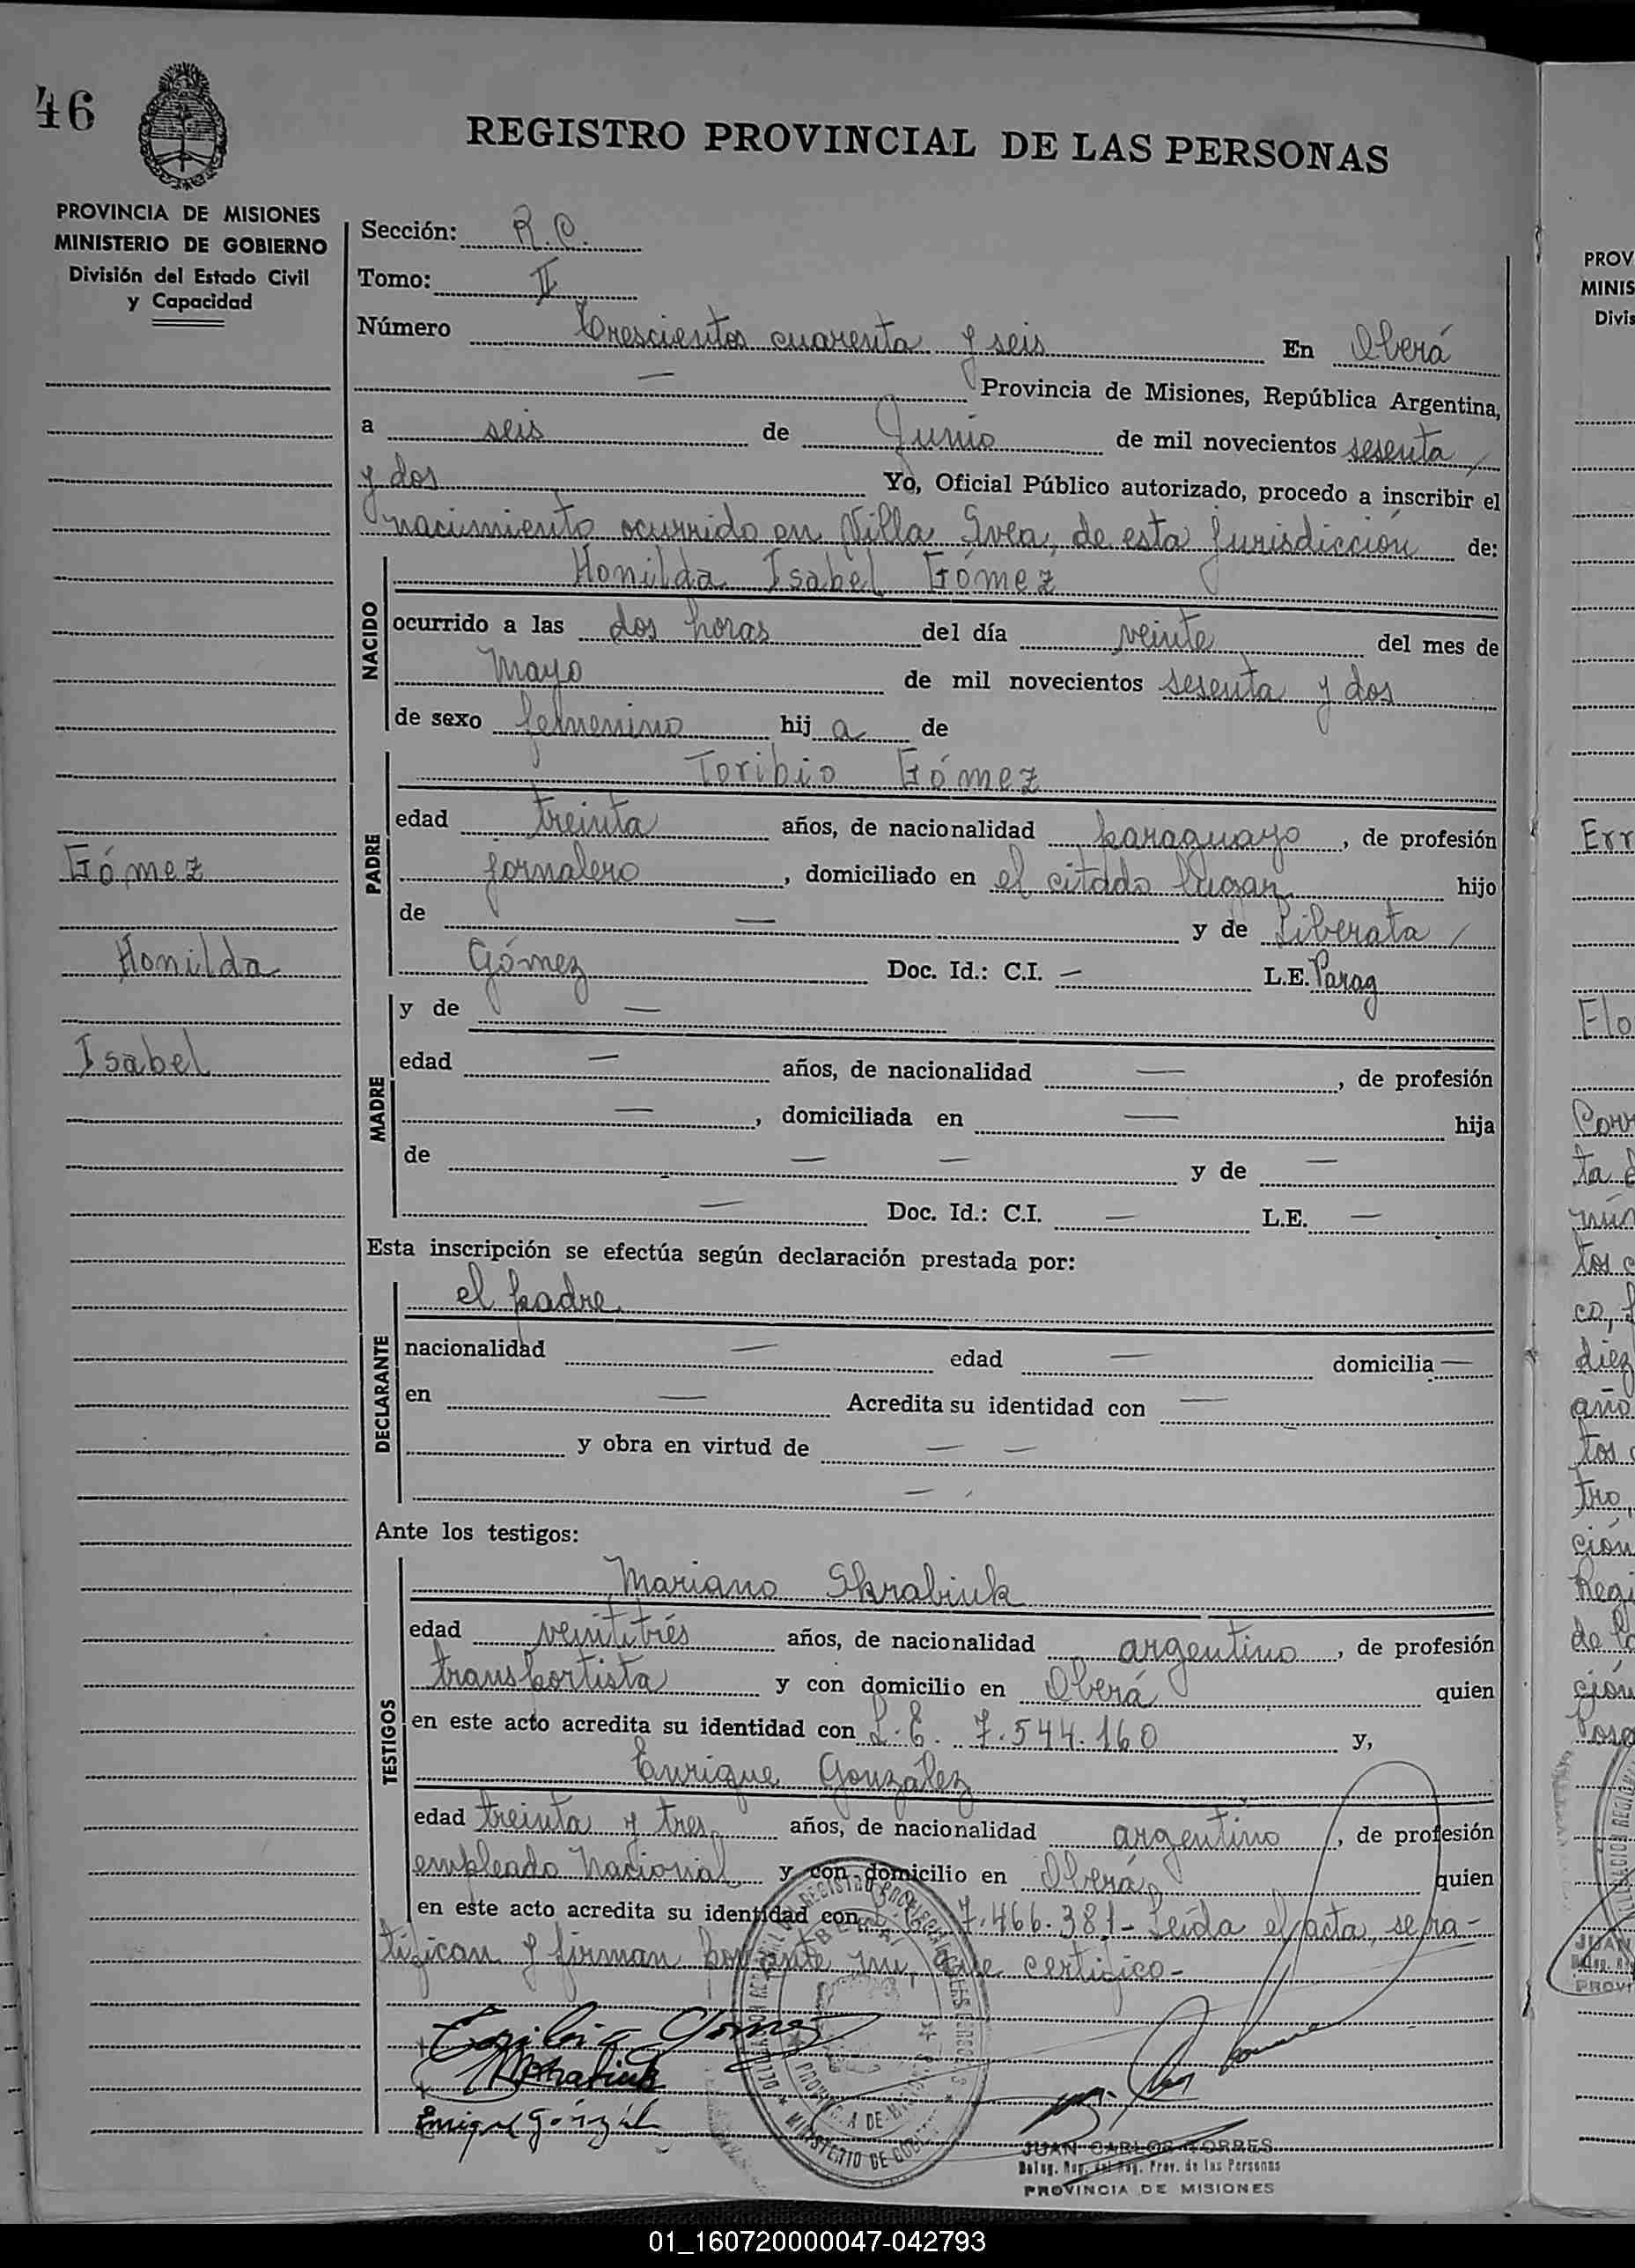 46
REGISTRO PROVINCIAL DE LAS PERSONAS
PROVINCIA DE MISIONES
MINISTERIO DE GOBIERNO
División del Estado Civil
y Capacidad
Sección: R.C.
Tomo: II
Número Trescientos cuarenta y seis En Oberá
— Provincia de Misiones, República Argentina,
a seis de Junio de mil novecientos sesenta /
y dos Yo, Oficial Público autorizado, procedo a inscribir el
nacimiento ocurrido en Villa Svea, de esta jurisdicción de:
NACIDO
Honilda Isabel Gómez
ocurrido a las dos horas del día veinte del mes de
Mayo de mil novecientos sesenta y dos
de sexo femenino hij a de
PADRE
Toribio Gómez
edad treinta años, de nacionalidad paraguayo, de profesión
jornalero, domiciliado en el citado lugar hijo
de — y de Liberata /
Gómez Doc. Id.: C.I. — L.E. Parag
Gómez
Honilda
Isabel
MADRE
y de —
edad — años, de nacionalidad —, de profesión
—, domiciliada en — hija
de — — y de —
— Doc. Id.: C.I. — L.E. —
Esta inscripción se efectúa según declaración prestada por:
DECLARANTE
el padre
nacionalidad — edad — domicilia —
en — Acredita su identidad con —
y obra en virtud de — —
—
Ante los testigos:
TESTIGOS
Mariano Skrabiuk
edad veintitrés años, de nacionalidad argentino, de profesión
transportista y con domicilio en Oberá quien
en este acto acredita su identidad con L.E. 7.544.160 y,
Enrique González
edad treinta y tres años, de nacionalidad argentino, de profesión
empleado Nacional y con domicilio en Oberá quien
en este acto acredita su identidad con 7.466.381- Leída el acta, se ra-
tifican y firman por ante mi, que certifico-
Toribio Gomez
MSkrabiuk
Enrique González
MINISTERIO DE GOBIERNO
PROVINCIA DE MISIONES
JUAN CARLOS TORRES
Deleg. Reg. del Reg. Prov. de las Personas
PROVINCIA DE MISIONES
PROV
MINIS
Divis
Err
Flo
diez
año
tos
tro,
ción
Regi
JUAN
PROVI
01_160720000047-042793